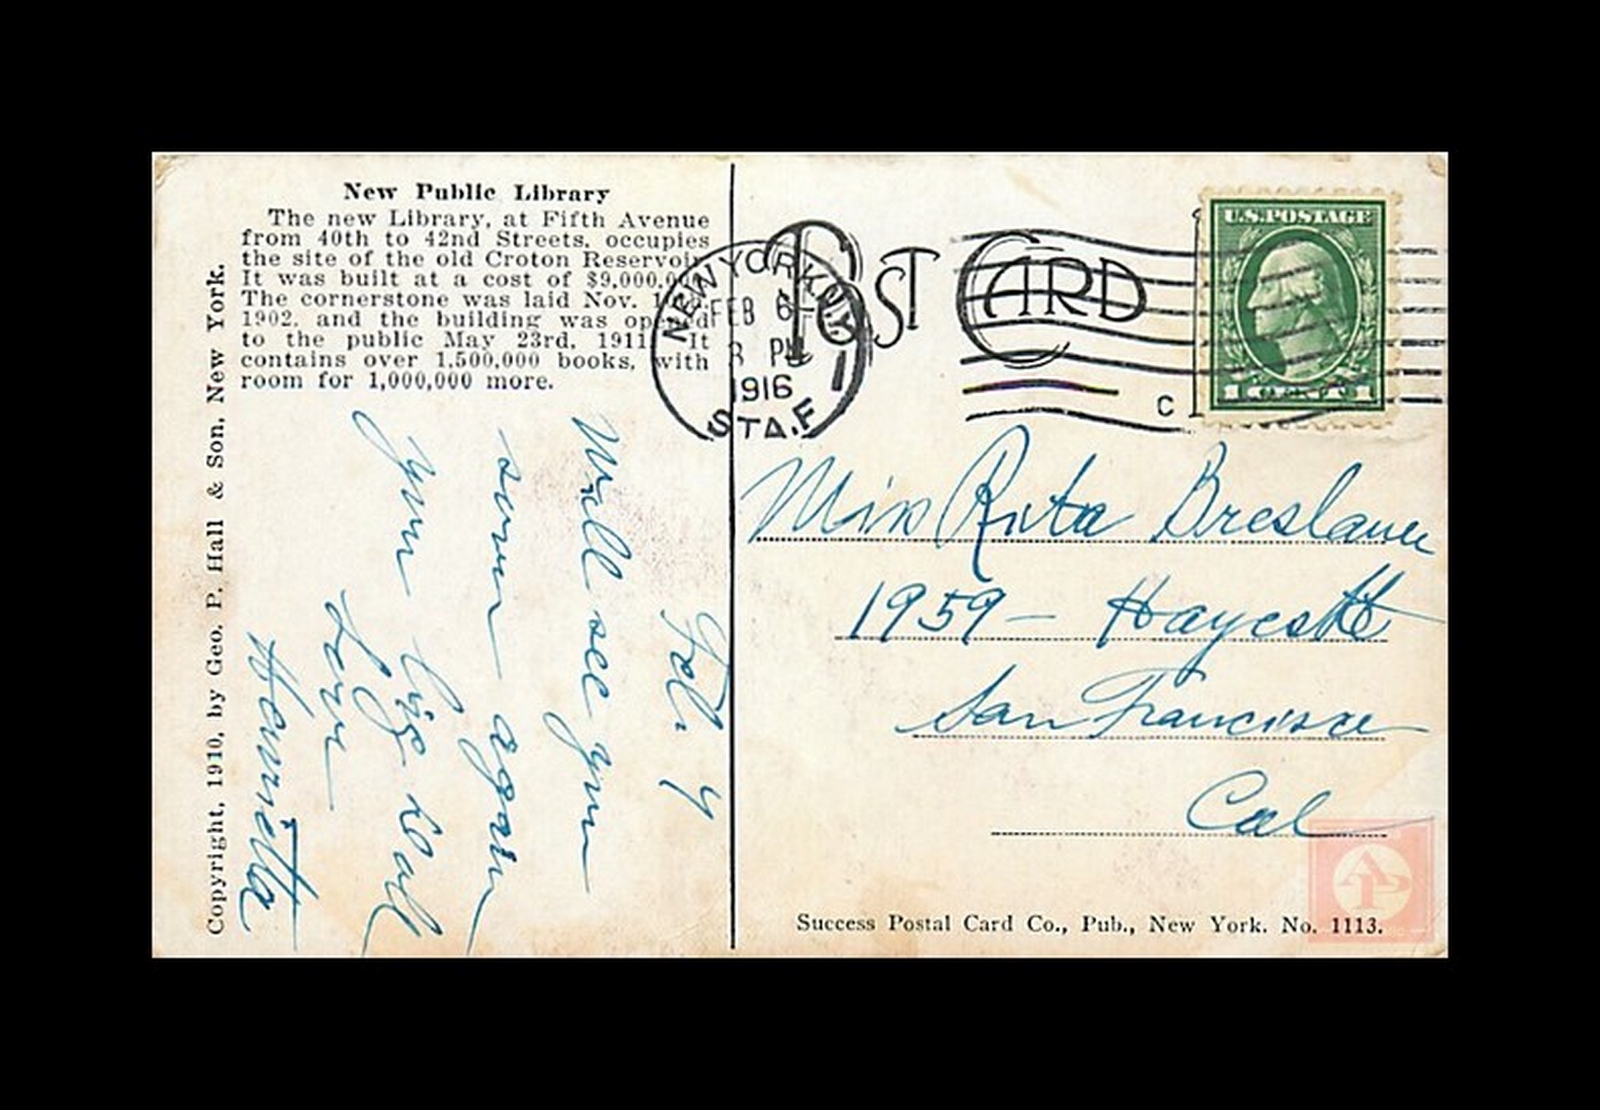 New Public Library
The new Library, at Fifth Avenue
from 40th to 42nd Streets, occupies
the site of the old Croton Reservoir.
It was built at a cost of $9,000,000.
The cornerstone was laid Nov.
1902, and the building was opened
to the public May 23rd, 1911. It
contains over 1,500,000 books, with
room for 1,000,000 more.
Copyright, 1910, by Geo. P. Hall & Son, New York.
POST CARD
NEW YORK, N.Y.
FEB 6
PM
1916
STA. F
1
C
U.S. POSTAGE
1 CENT 1
Feb. 4
Will see you
soon again
your big doll
Love
Henrietta
Miss Ruta Breslauer
1959 - Hayes St
San Francisco
Cal
Success Postal Card Co., Pub., New York. No. 1113.